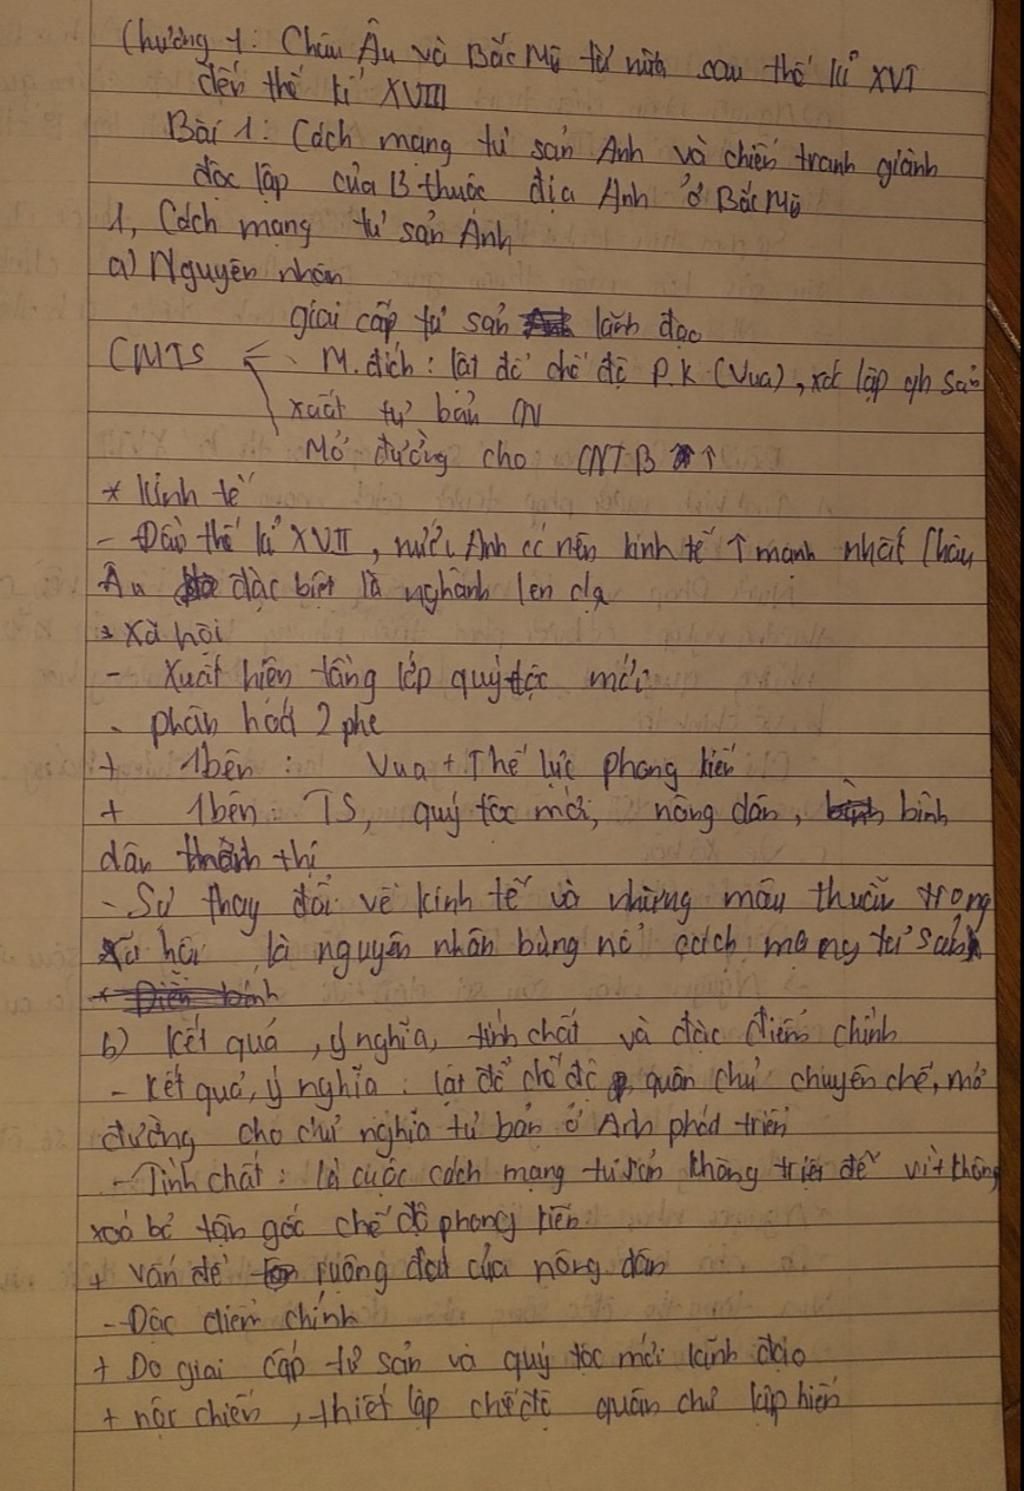 Chương 1: Châu Âu và Bắc Mỹ từ nửa sau thế kỉ XVI
đến thế kỉ XVIII
Bài 1: Cách mạng tư sản Anh và chiến tranh giành
độc lập của 13 thuộc địa Anh ở Bắc Mỹ
1, Cách mạng tư sản Anh
a) Nguyên nhân
giai cấp tư sản lãnh đạo
CMTS - M.đích: lật đổ chế độ P.K (Vua), xác lập qh sản
xuất tư bản CN
Mở đường cho CNTB ↑
* Kinh tế
- Đầu thế kỉ XVII, nước Anh có nền kinh tế ↑ mạnh nhất Châu
Âu đặc biệt là nghành len dạ
* Xã hội
- Xuất hiện tầng lớp quý tộc mới
- phân hoá 2 phe
+ 1 bên: Vua + Thế lực phong kiến
+ 1 bên: TS, quý tộc mới, nông dân, bình
dân thành thị
- Sự thay đổi về kinh tế và những mâu thuẫn trong
xã hội là nguyên nhân bùng nổ cách mạng tư sản
b) Kết quả, ý nghĩa, tính chất và đặc điểm chính
- Kết quả, ý nghĩa: lật đổ chế độ quân chủ chuyên chế, mở
đường cho chủ nghĩa tư bản ở Anh phát triển
- Tính chất: là cuộc cách mạng tư sản không triệt để vì + không
xoá bỏ tận gốc chế độ phong kiến
+ vấn đề ruộng đất của nông dân
- Đặc điểm chính
+ Do giai cấp tư sản và quý tộc mới lãnh đạo
+ nội chiến, thiết lập chế độ quân chủ lập hiến